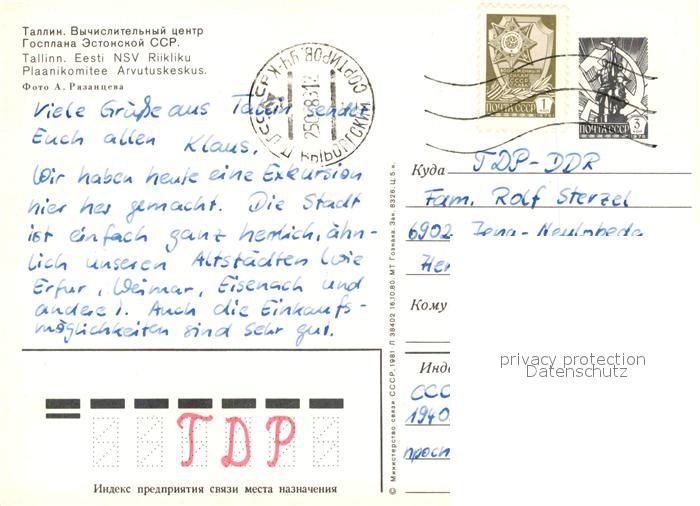 Таллин. Вычислительный центр
Госплана Эстонской ССР.
Tallinn. Eesti NSV Riikliku
Plaanikomitee Arvutuskeskus.
Фото А. Рязанцева
Viele Grüße aus Tallin sendet
Euch allen Klaus.
Wir haben heute eine Exkursion
hier her gemacht. Die Stadt
ist einfach ganz herrlich, ähn-
lich unseren Altstädten (wie
Erfur, Weimar, Eisenach und
andere). Auch die Einkaufs-
möglichkeiten sind sehr gut.
ГДР
Индекс предприятия связи места назначения
© Министерство связи СССР, 1981. Л 38402 16.10.80. МТ Гознака. Зак. 8326. Ц. 5 к.
ПОЧТА СССР 1
ПОЧТА СССР 3
Куда ГДР-DDR
Fam. Rolf Sterzel
6902 Jena-Neulobeda
Кому
privacy protection
Datenschutz
Инде
ССС
1940
просп